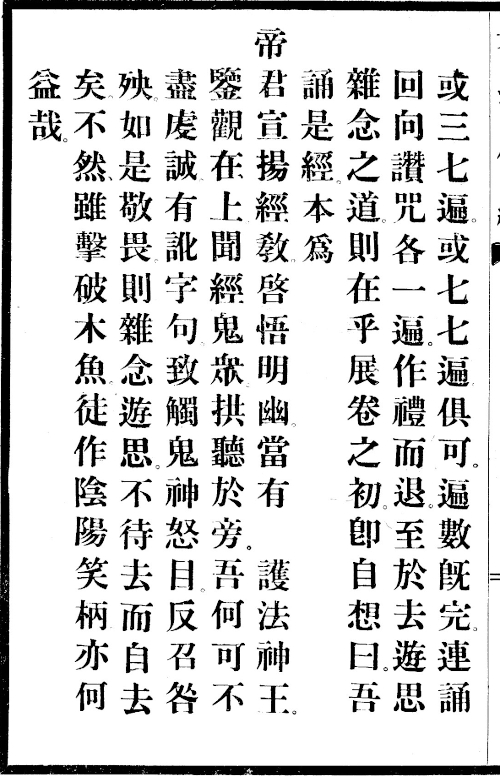 或三七遍。或七七遍俱可。遍數旣完。連誦
回向讚咒各一遍。作禮而退。至於去遊思
雜念之道。則在乎展卷之初。卽自想曰。吾
誦是經。本爲
帝君宣揚經敎。啓悟明幽。當有　護法神王。
鑒觀在上。聞經鬼眾。拱聽於旁。吾何可不
盡虔誠。有訛字句。致觸鬼神怒目。反召咎
殃。如是敬畏。則雜念遊思。不待去而自去
矣。不然雖擊破木魚。徒作陰陽笑柄。亦何
益哉。